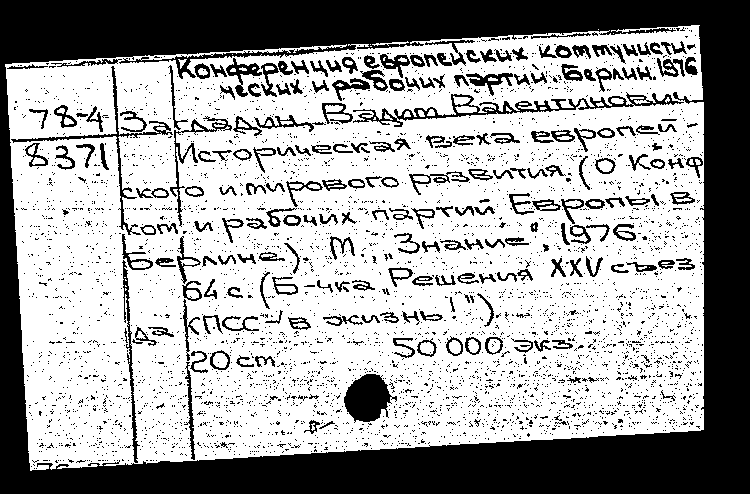 Конференция европейских коммунисти-
ческих и рабочих партий. Берлин. 1976
78-4 Загладин, Вадим Валентинович
8371 Историческая веха европей-
ского и мирового развития. (О Конф
ком. и рабочих партий Европы в
Берлине). М., „Знание", 1976.
64 с. (Б-чка „Решения XXV съез
да КПСС - в жизнь!").
20 ст. 50 000 экз.